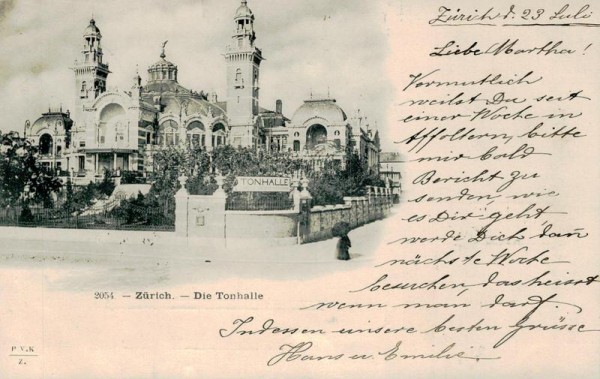 Zürich d. 23 Juli
Liebe Martha!
Vermutlich
weilst Du seit
einer Woche in
Affoltern, bitte
mir bald
Bericht zu
senden, wie
es Dir geht
werde Dich dan
nächste Woche
besuchen, das heisst
wenn man darf.
Indessen unsere besten Grüsse
Hans u. Emilie.
TONHALLE
2054 — Zürich. — Die Tonhalle
P. V. K
Z.